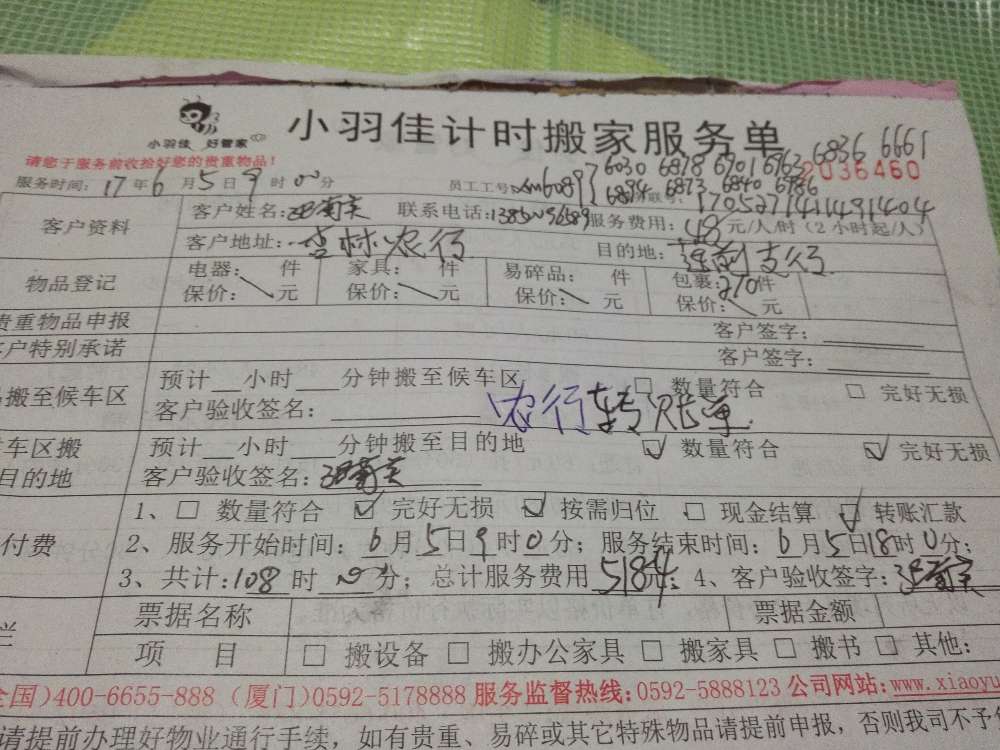 小羽佳 好管家
小羽佳计时搬家服务单
请您于服务前收拾好您的贵重物品!
2036460
6030 6818 6701 6963 6836 6661
6873 6840
服务时间: 17年6月5日9时00分 员工工号:
1705271411491404
客户资料 客户姓名: 联系电话: 服务费用: 48元/人/时(2小时起/人)
客户地址: 杏林农行 目的地: 支行
物品登记 电器: 件 家具: 件 易碎品: 件 包裹: 210件
保价: 元 保价: 元 保价: 元 保价: 元
贵重物品申报 客户签字:
客户特别承诺 客户签字:
搬至候车区 预计 小时 分钟搬至候车区 数量符合 完好无损
客户验收签名: 农行转账单
车区搬 预计 小时 分钟搬至目的地 数量符合 完好无损
目的地 客户验收签名:
1、 数量符合 完好无损 按需归位 现金结算 转账汇款
付费 2、服务开始时间: 6月5日9时0分; 服务结束时间: 6月5日18时0分;
3、共计: 108时 分; 总计服务费用 5184元; 4、客户验收签字:
栏 票据名称 票据金额
项 目 搬设备 搬办公家具 搬家具 搬书 其他:
全国)400-6655-888 (厦门)0592-5178888 服务监督热线:0592-5888123 公司网站:www.xiaoyu
请提前办理好物业通行手续，如有贵重、易碎或其它特殊物品请提前申报，否则我司不予